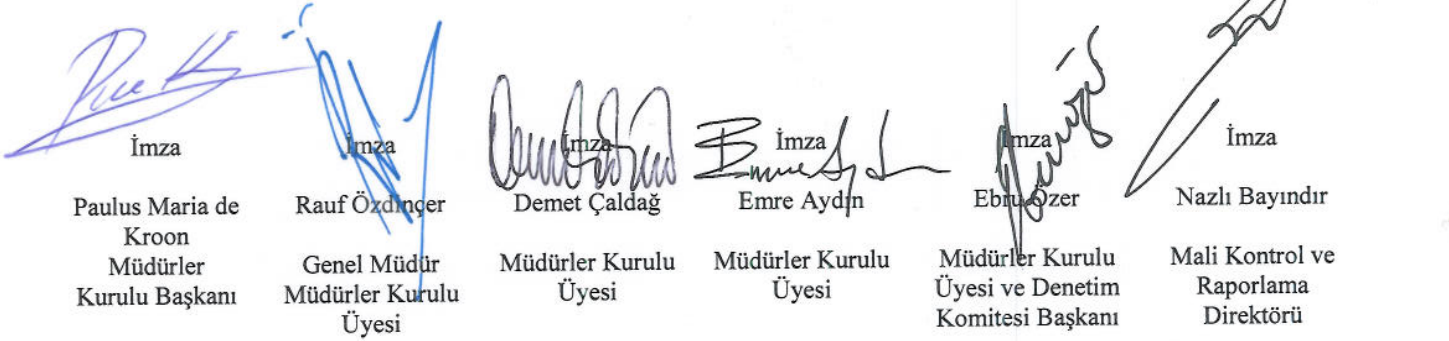 İmza İmza İmza İmza İmza İmza
Paulus Maria de Kroon
Müdürler
Kurulu Başkanı
Rauf Özdinçer
Genel Müdür
Müdürler Kurulu
Üyesi
Demet Çaldağ
Müdürler Kurulu
Üyesi
Emre Aydın
Müdürler Kurulu
Üyesi
Ebru Özer
Müdürler Kurulu
Üyesi ve Denetim
Komitesi Başkanı
Nazlı Bayındır
Mali Kontrol ve
Raporlama
Direktörü